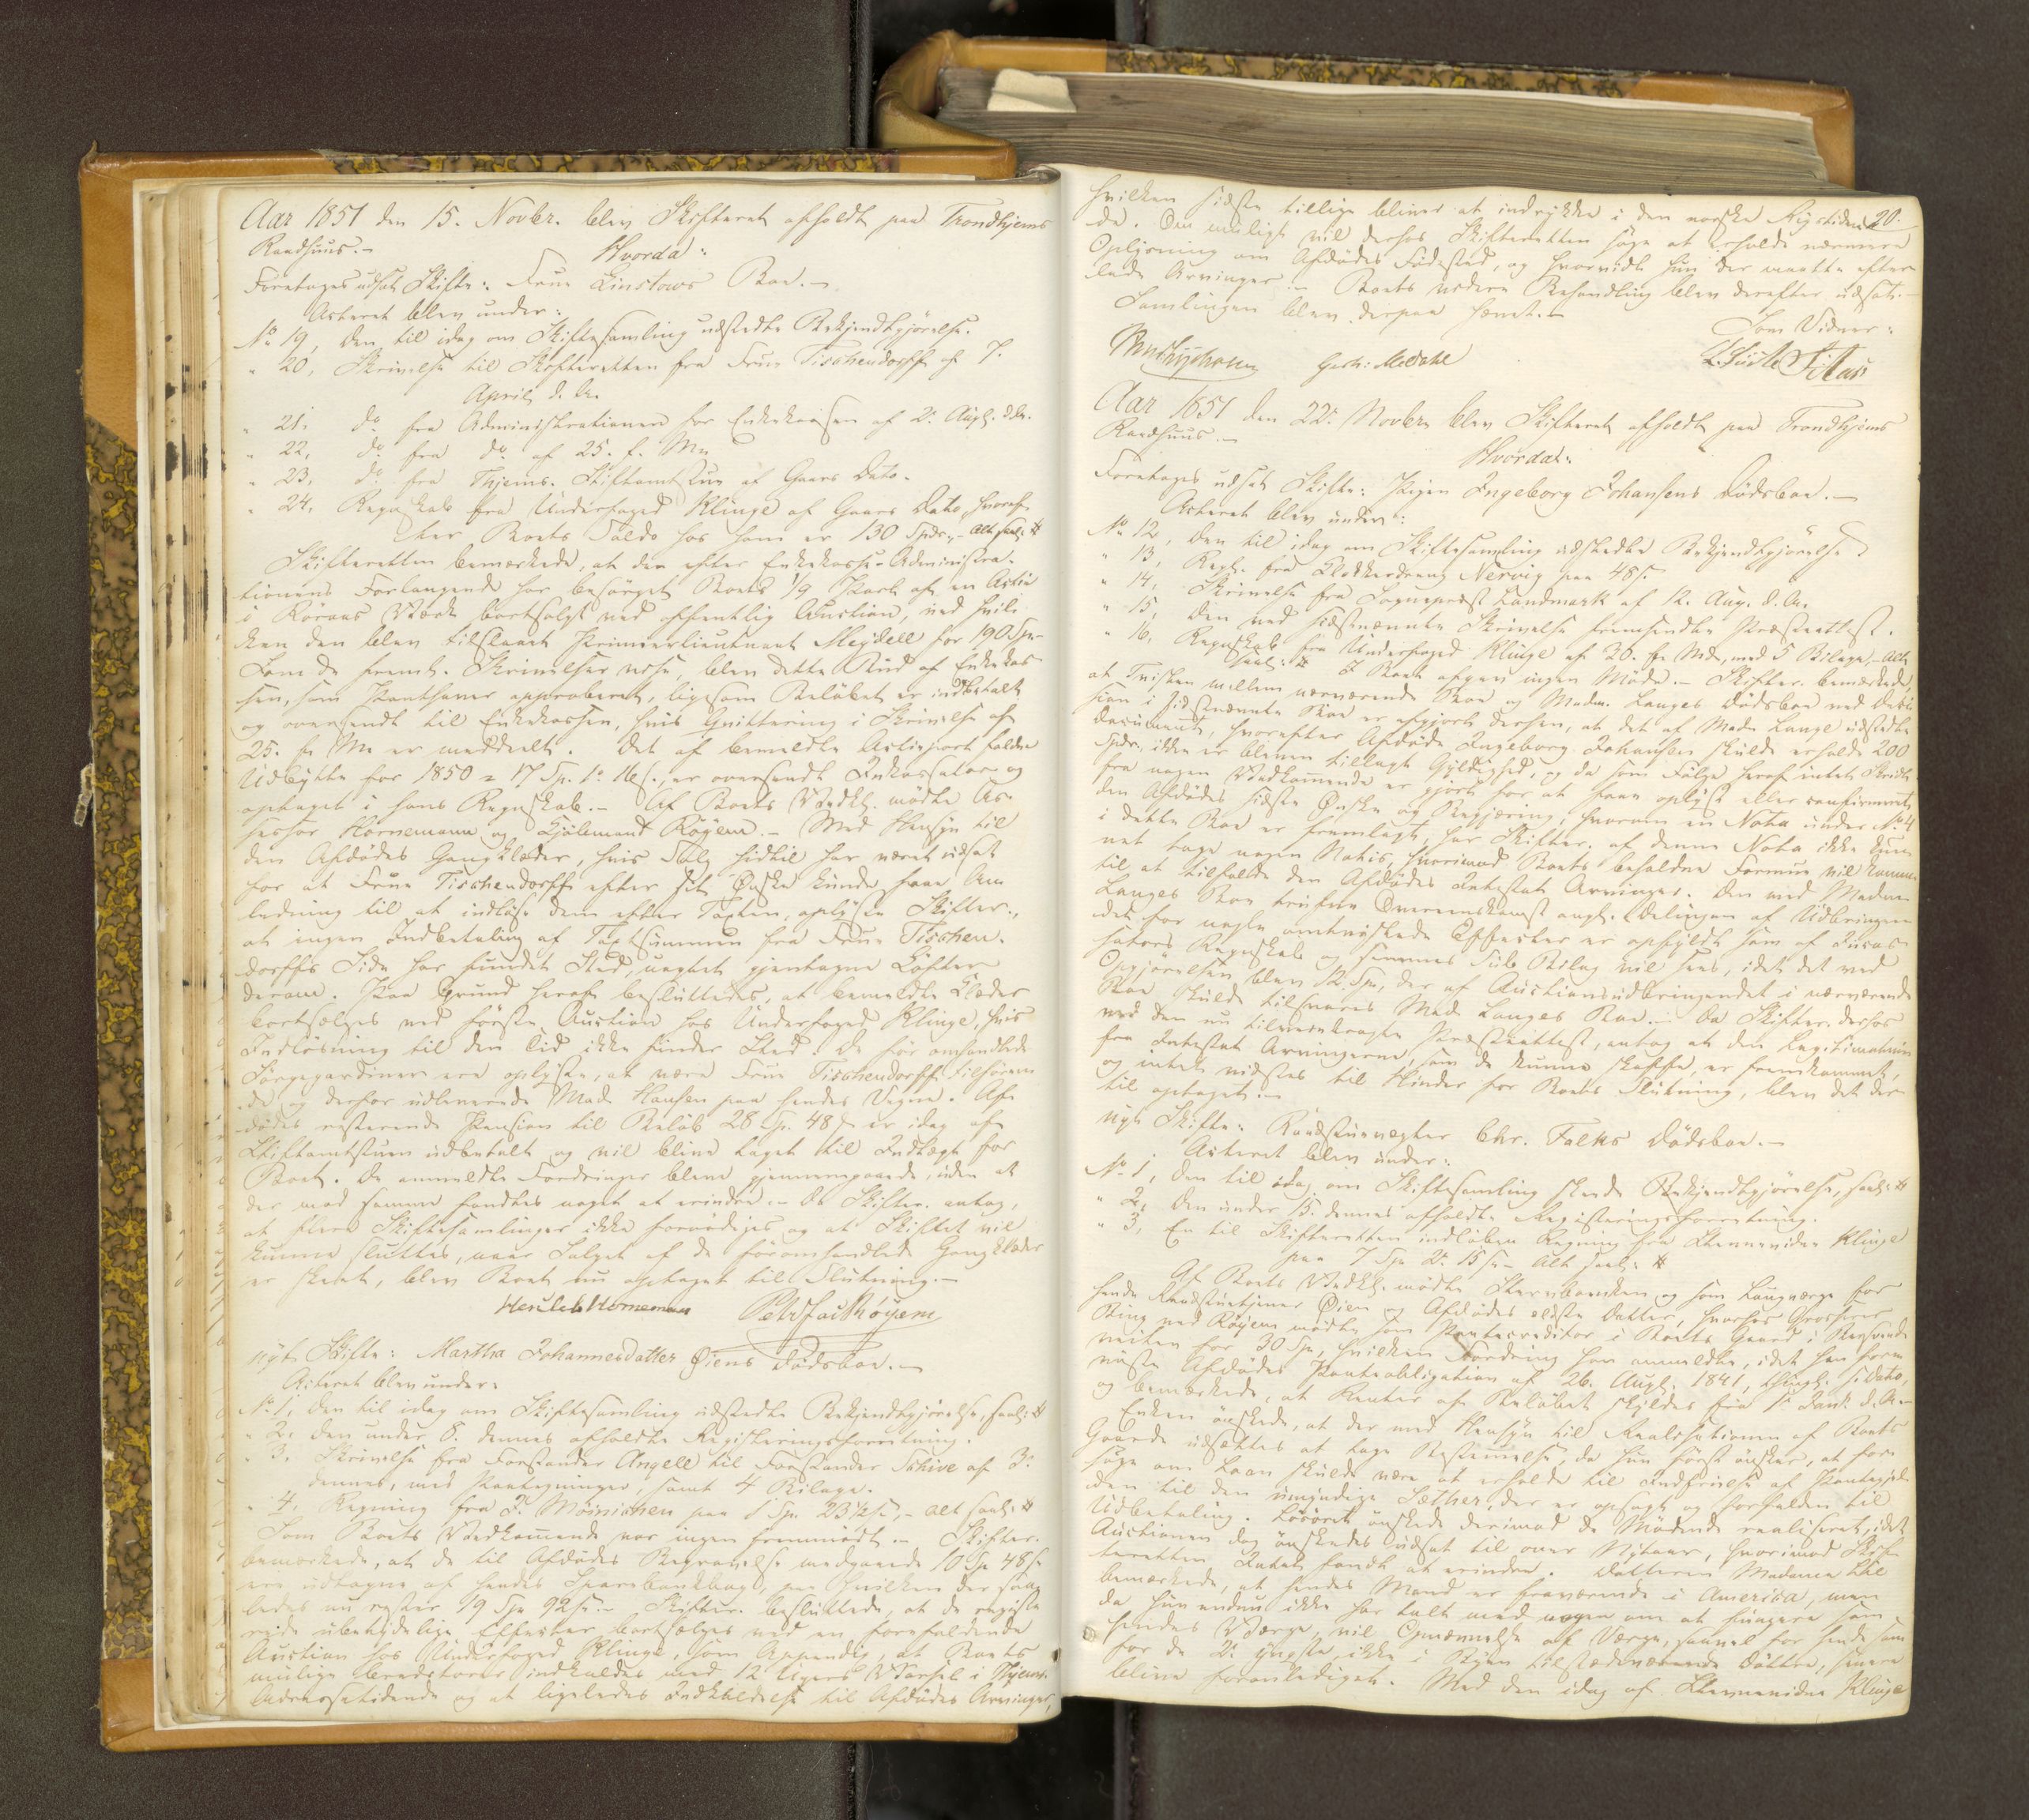 Aar 1851 den 15. Novbr. blev Skifteret afholdt paa Trondhjems
Raadhuus.-
Hvorda:
Foretages udsat Skifte: Frue Linstows Boe.-
Acteret blev under:
No 19, den til idag om Skiftesamling udstedte Bekjendtgjörelse.
" 20, Skrivelse til Skifteretten fra Frue Tischendorff af 7.
April d. A.
" 21. do fra Administrationen for Enkekassen af 2. Augt. d. A.
" 22, do fra do af 25. f. M.
" 23, do fra Thjems. Stiftamtstue af Gaars Dato.
" 24, Regnskab fra Underfoged Klinge af Gaars Dato, hvoraf
Boets Saldo hos ham er 130 Spdr.- Alt saal:
Skifteretten bemærkede, at den efter Enkekasse-Administra-
tionens Forlangende har besörget Boets 1/9 Part af en Actie
i Röraas Værk bortsolgt ved offentlig Auction, ved hvil-
ken den blev tilslaaet Premierlieutenant Meydell for 190 Sp.-
Som de fremt. Skrivelser vise, blev dette Bud af Enkekas-
sen, som Panthaver approberet, ligesom Belöbet er indbetalt
og oversendt til Enkekassen, hvis Qvittering i Skrivelse af
25. f. M. er meddeelt. Det af bemeldte Actiepart faldne
Udbytte for 1850 = 17 Sp. er oversendt Inkassator og
optaget i hans Regnskab.- Af Boets Vedk. mödte As-
sessor Hornemann og Röyem.- Med Hensyn til
den Afdödes Gangklæder, hvis Salg hidtil har været udsat
for at Frue Tischendorff efter sit Önske kunde faae An-
ledning til at indlöse dem efter Taxten, oplyste Skifter.,
at ingen Indbetaling af Taxtsummen fra Frue Tischen-
dorffs Side har fundet Sted, uagtet gjentagne Löfter
derom. Paa Grund heraf besluttedes, at bemeldte Klæder
bortsælges ved förste Auction hos Underfoged Klinge, hvis
Indlösning til den Tid ikke finder Sted. De för omhandlede
Sörgegardiner ere oplyste, at være Frue Tischendorff tilhören-
de og derfor udleverede Mad. Hansen paa hendes Vegne. Af-
dödes resterende Pension til Belöb 28 Sp. 48 s er idag af
Stiftamtstuen udbetalt og vil blive taget til Indtægt for
Boet. De anmeldte Fordringer bleve gjennemgaaede, uden at
der mod samme fandtes noget at erindre.- Da Skifter. antog,
at flere Skiftesamlinger ikke fornödiges og at Skiftet vil
kunne sluttes, naar Salget af de föromhandlede Gangklæder
er skeet, blev Boet nu optaget til Slutning.-
Hornemann
Röyem
nyt Skifte: Martha Johannesdatter Öiens Dödsboe.-
Acteret blev under:
No 1, den til idag om Skiftesamling udstedte Bekjendtgjörelse, saal:
" 2. den under 8. dennes afholdte Registreringsforretning.
" 3. Skrivelse fra Forstander Angell til Forstander Schive af 3.
dennes, med Paategninger, samt 4 Bilage.
" 4. Regning fra J. Möinichen paa 1 Sp. 23 1/2 s,- alt saal:
Som Boets Vedkommende var ingen fremmödt.- Skifter.
bemærkede, at de til Afdödes Begravelse medgaaede 10 Sp 48 s
ere udtagne af hendes Sparebankbog, paa hvilken der saa-
ledes nu rester 19 Sp 92 s.- Skifter. besluttede, at de registe-
rede ubetydelige Effecter bortsælges ved en forefaldende
Auction hos Underfoged Klinge, som Appendix, at Boets
mulige Creditorer indkaldes med 12 Ugers Varsel i Thjems.
Adresseetidende og at ligeledes Indkaldelse til Afdödes Arvinger,
hvilken sidste tillige bliver at indrykke i den norske Rigstiden- 20.
de. Om muligt vil derhos Skifteretten söge at erholde nærmere
Oplysning om Afdödes Födested, og hvorvidt hun der maatte efter-
lade Arvinger.- Boets videre Behandling blev derefter udsat.-
Samlingen blev derpaa hævet.-
Som Vidner:
Aar 1851 den 22. Novbr. blev Skifteret afholdt paa Trondhjems
Raadhuus.-
Hvorda:
Foretages udsat Skifte: Pigen Ingeborg Johansens Dödsboe.-
Acteret blev under:
No 12, den til idag om Skiftesamling udstedte Bekjendtgjörelse
" 13, Regt. fra Klokkerdreng Nervig paa 48 s.
" 14, Skrivelse fra Sognepræst Landmark af 12. Aug. d. A.
" 15, den med sidstnævnte Skrivelse fremsendte Præsteattest.
" 16, Regnskab fra Underfoged Klinge af 30. f. Md., med 5 Bilage,- Alt
saal: I Boet afgav ingen Möde.- Skifter. bemærkede,
at Tvisten mellem nærværende Boe og Madm. Langes Dödsboe
i sidstnævnte Boe er afgjort derhen, at det af Mad. Lange udstedte
Document, hvorefter Afdöde Ingeborg Johansen skulde erholde 200
Spdr., ikke er bleven tillagt Gyldighed, og da som Fölge heraf intet Skridt
fra nogen Vedkommende er gjort for at faae oplyst eller confirmeret
den Afdödes sidste Önske og Begjæring, hvorom en Nota under No 4
i dette Boe er fremlagt, har Skifter. af denne Nota ikke kun-
net tage nogen Notis, hvorimod Boets beholdne Formue vil komme
til at tilfalde den Afdödes Intestat Arvinger. Den med Madm.
Langes Boe trufne Overeenskomst angt. Delingen af Udbringen-
det for nogle omtvistede Effecter er opfyldt som af Incas-
sators Regnskab og sammes Bilag vil sees, idet det ved
Opgjörelsen blev 12 Sp., der af Auctionsudbringendet i nærværende
Boe skulde tilsvares Mad. Langes Boe.- Da Skifter. derhos
ved den nu tilveiebragte Præsteattest, antog at den Legitimation
fra Intestat Arvingerne, som de kunne skaffe, er fremkommet,
og intet vidstes til Hinder for Boets Slutning, blev det der-
til optaget.-
nyt Skifte: Raadstuevægter Chr. Falks Dödsboe.-
Acteret blev under:
No 1, den til idag om Skiftesamling skeede Bekjendtgjörelse, saal:
" 2, den under 15. dennes afholdte Registreringsforretning.
" 3, En til Skifteretten indlöben Regning fra Stervervidne Klinge
paa 7 Sp 2. 15 s.- Alt saal:
Af Boets Vedk. mödte Stervboenken og som Laugværge for
hende Raadstuetjener Öien og Afdödes ældste Datter, hvorhos Grosserer
Bing ved Röyem mödte som Pantecreditor i Boets Gaard i
for 30 Sp, hvilken Fordring han anmeldte, idet han frem-
viiste Afdödes Pantobligation af 26. Augt. 1841,
og bemærkede, at Renter af Belöbet skyldes fra 1. Jan. d. A.-
Enken önskede, at der med Hensyn til Realisationen af Boets
Gaarde udsættes at tage Bestemmelse, da hun först önsker, at for-
söge om Laan skulde være at erholde til Indfrielse af Pantegjel-
den til den umyndige Sæther, der er opsagt og forfalden til
Udbetaling. Lösöret önskede derimod de Mödende realiseret, idet
Auctionen dog önskedes udsat til over Nytaar, hvorimod Skif-
teretten Intet fandt at erindre. Datteren Madame
bemærkede, at hendes Mand er fraværende i America, men
da hun endnu ikke har talt med nogen om at fungere som
hendes Værge, vil Opnævnelse af Værge, saavel for hende som
for de 2. yngste, ikke i Byen tilstedeværende Döttre, senere
blive foranlediget. Med den idag af Stervervidne Klinge